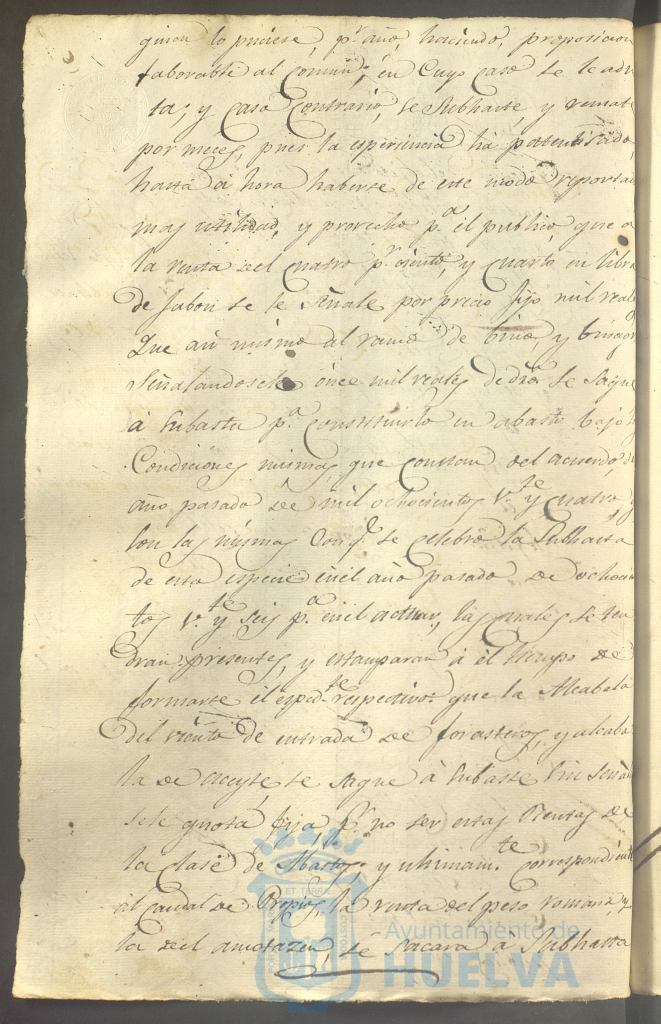 guien lo hiciese, pr. año, haciendo, proposicion
faborable al Comun, en Cuyo Caso se le admi
ta, y Caso Contrario, se Subhaste, y remate
por meces, pues la esperiencia ha patentizado,
hasta á hora haberse de este modo reportado
mas utilidad, y provecho pa. el publico, que a
la renta del Cuatro pr. ciento, y Cuarto en libra
de Jabon se le Señale por precio fijo mil reales
Que asi mismo al ramo de bino, y binagre
Señalandosele once mil reales de dro. se saque
á Subasta pa. Constituirlo en abasto bajo las
Condiciones mismas que Constan del acuerdo, del
año pasado de mil ochocientos v.te y cuatro, y
con las mismas Con q.e se celebró la Subhasta
de esta especie en el año pasado de ochocien
tos v.te y seis pa. en el actual, las cuales se ten
dran presentes, y estamparan á el tiempo de
formarse el exped.te respectivo: que la Alcabala
del viento de entrada de forasteros, y alcaba
la de aceyte se saque á Subasta sin señalar
sele quota fija, pr. no ser estas Rentas de
la clase de Abastos, y ultimam.te correspondiente
al caudal de Propios, la renta del peso romana, y
la del amotazen, se sacara á Subhasta
Ayuntamiento de
HUELVA